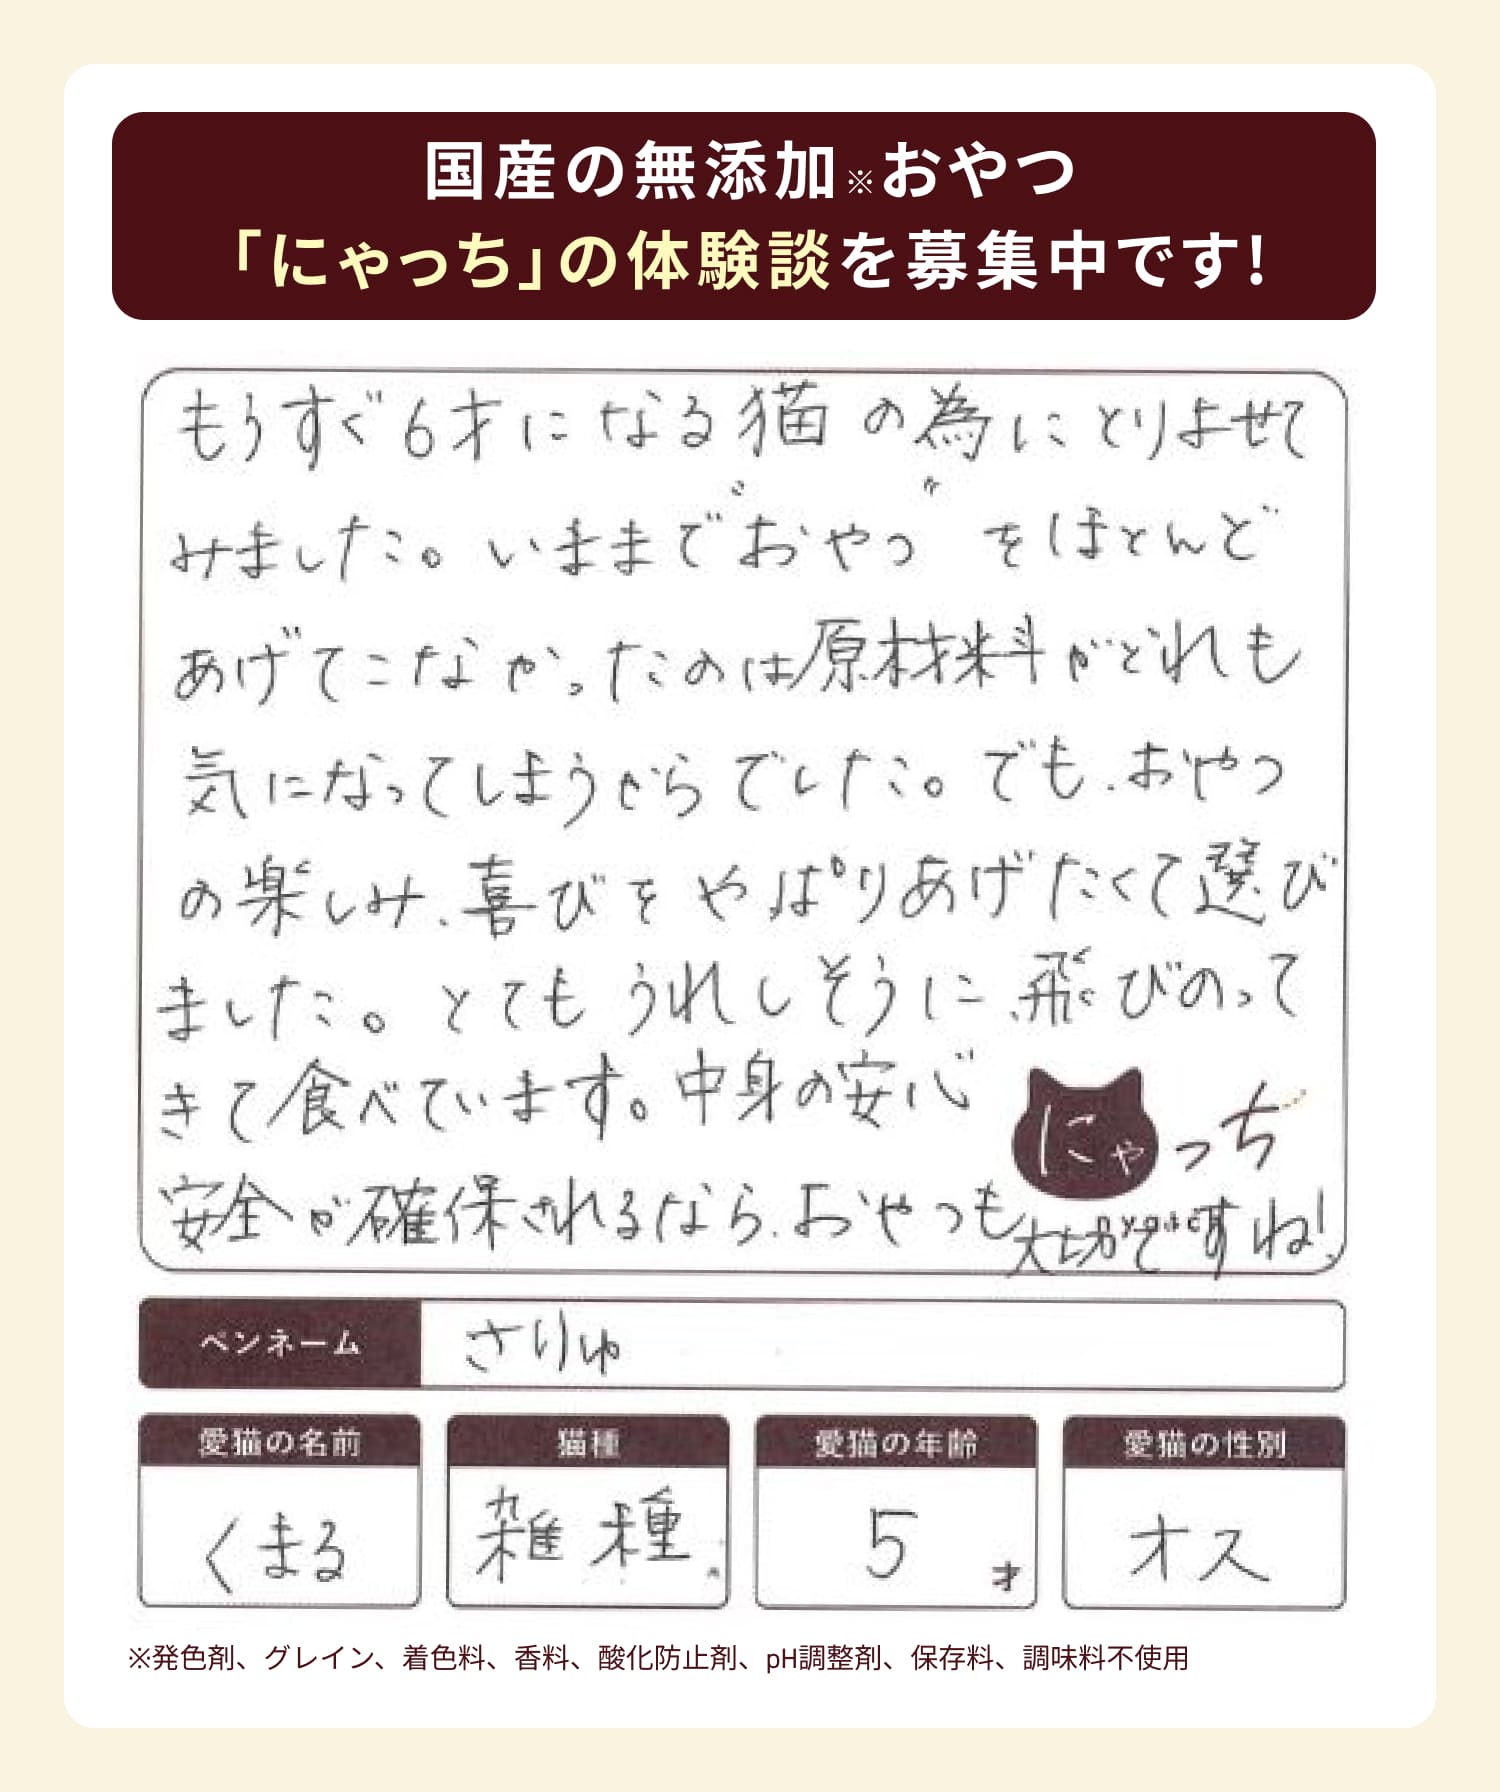 国産の無添加※おやつ
「にゃっち」の体験談を募集中です!
もうすぐ6才になる猫の為にとりよせて
みました。いままで"おやつ"をほとんど
あげてこなかったのは原材料がどれも
気になってしまうからでした。でも、おやつ
の楽しみ、喜びをやっぱりあげたくて選び
ました。とてもうれしそうに飛びのって
きて食べています。中身の安心
にゃっち
安全が確保されるなら、おやつも大切ですね!
ペンネーム
さりゅ
愛猫の名前
くまる
猫種
雑種
愛猫の年齢
5才
愛猫の性別
オス
※発色剤、グレイン、着色料、香料、酸化防止剤、pH調整剤、保存料、調味料不使用